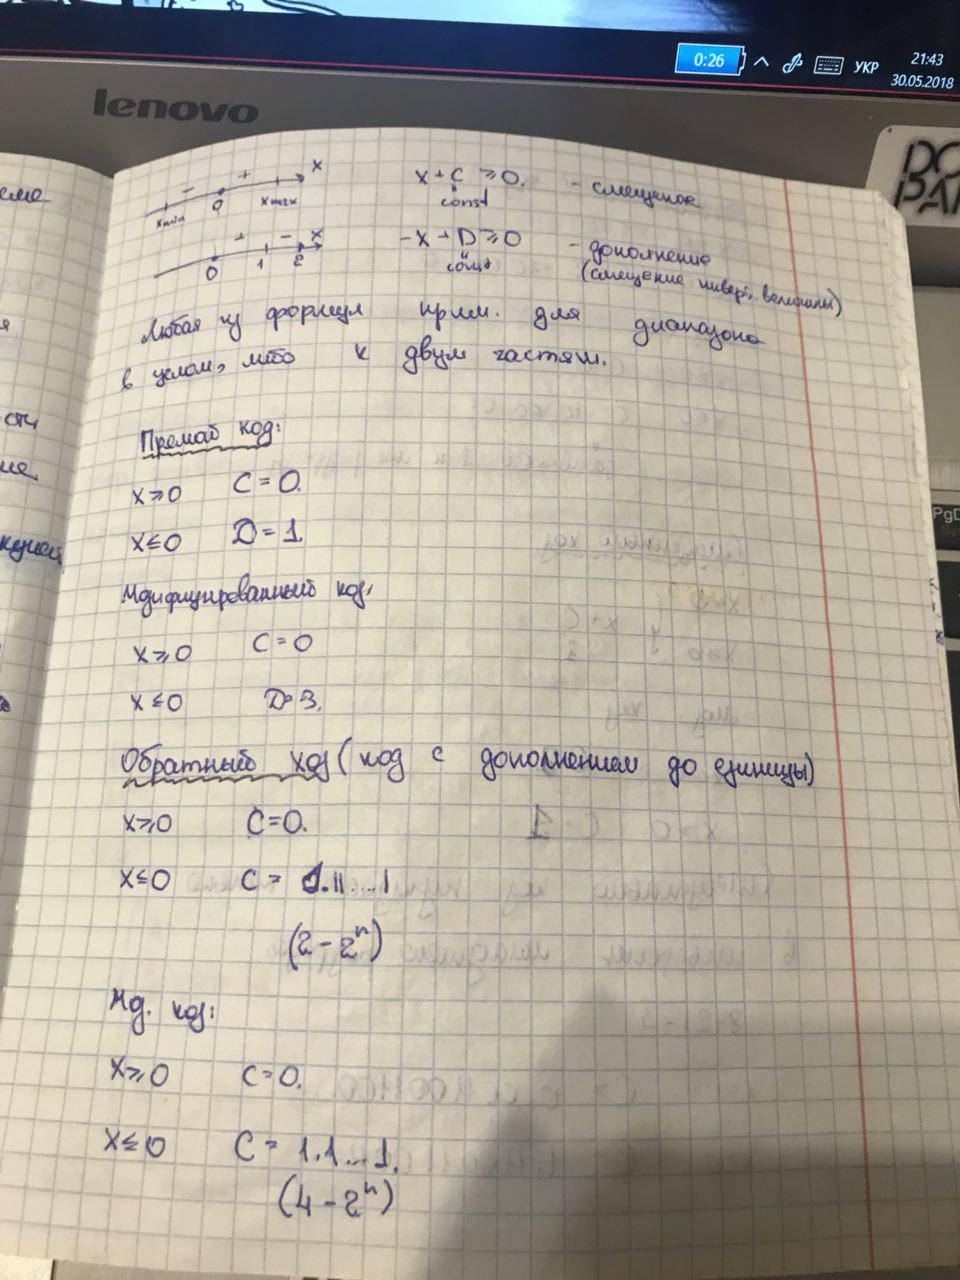 0:26 УКР 21:43
30.05.2018
lenovo
PgD
- + x
xmin 0 xmax
x + C ≥ 0. - смещеное
const
+ - x
0 1 2
-x + D ≥ 0 - дополнение
const (смещение инверт. величины)
Любая из формул прим. для диапазона
в целом, либо к двум частям.
Премай код:
x ≥ 0 C = 0.
x ≤ 0 D = 1.
Мдифицированный код:
x ≥ 0 C = 0
x ≤ 0 D = 3.
Обратный код (код с дополнением до единицы)
x ≥ 0 C = 0.
x ≤ 0 C = 1.11...1
(2 - 2ⁿ)
Мд. код:
x ≥ 0 C = 0.
x ≤ 0 C = 1.1...1.
(4 - 2ⁿ)